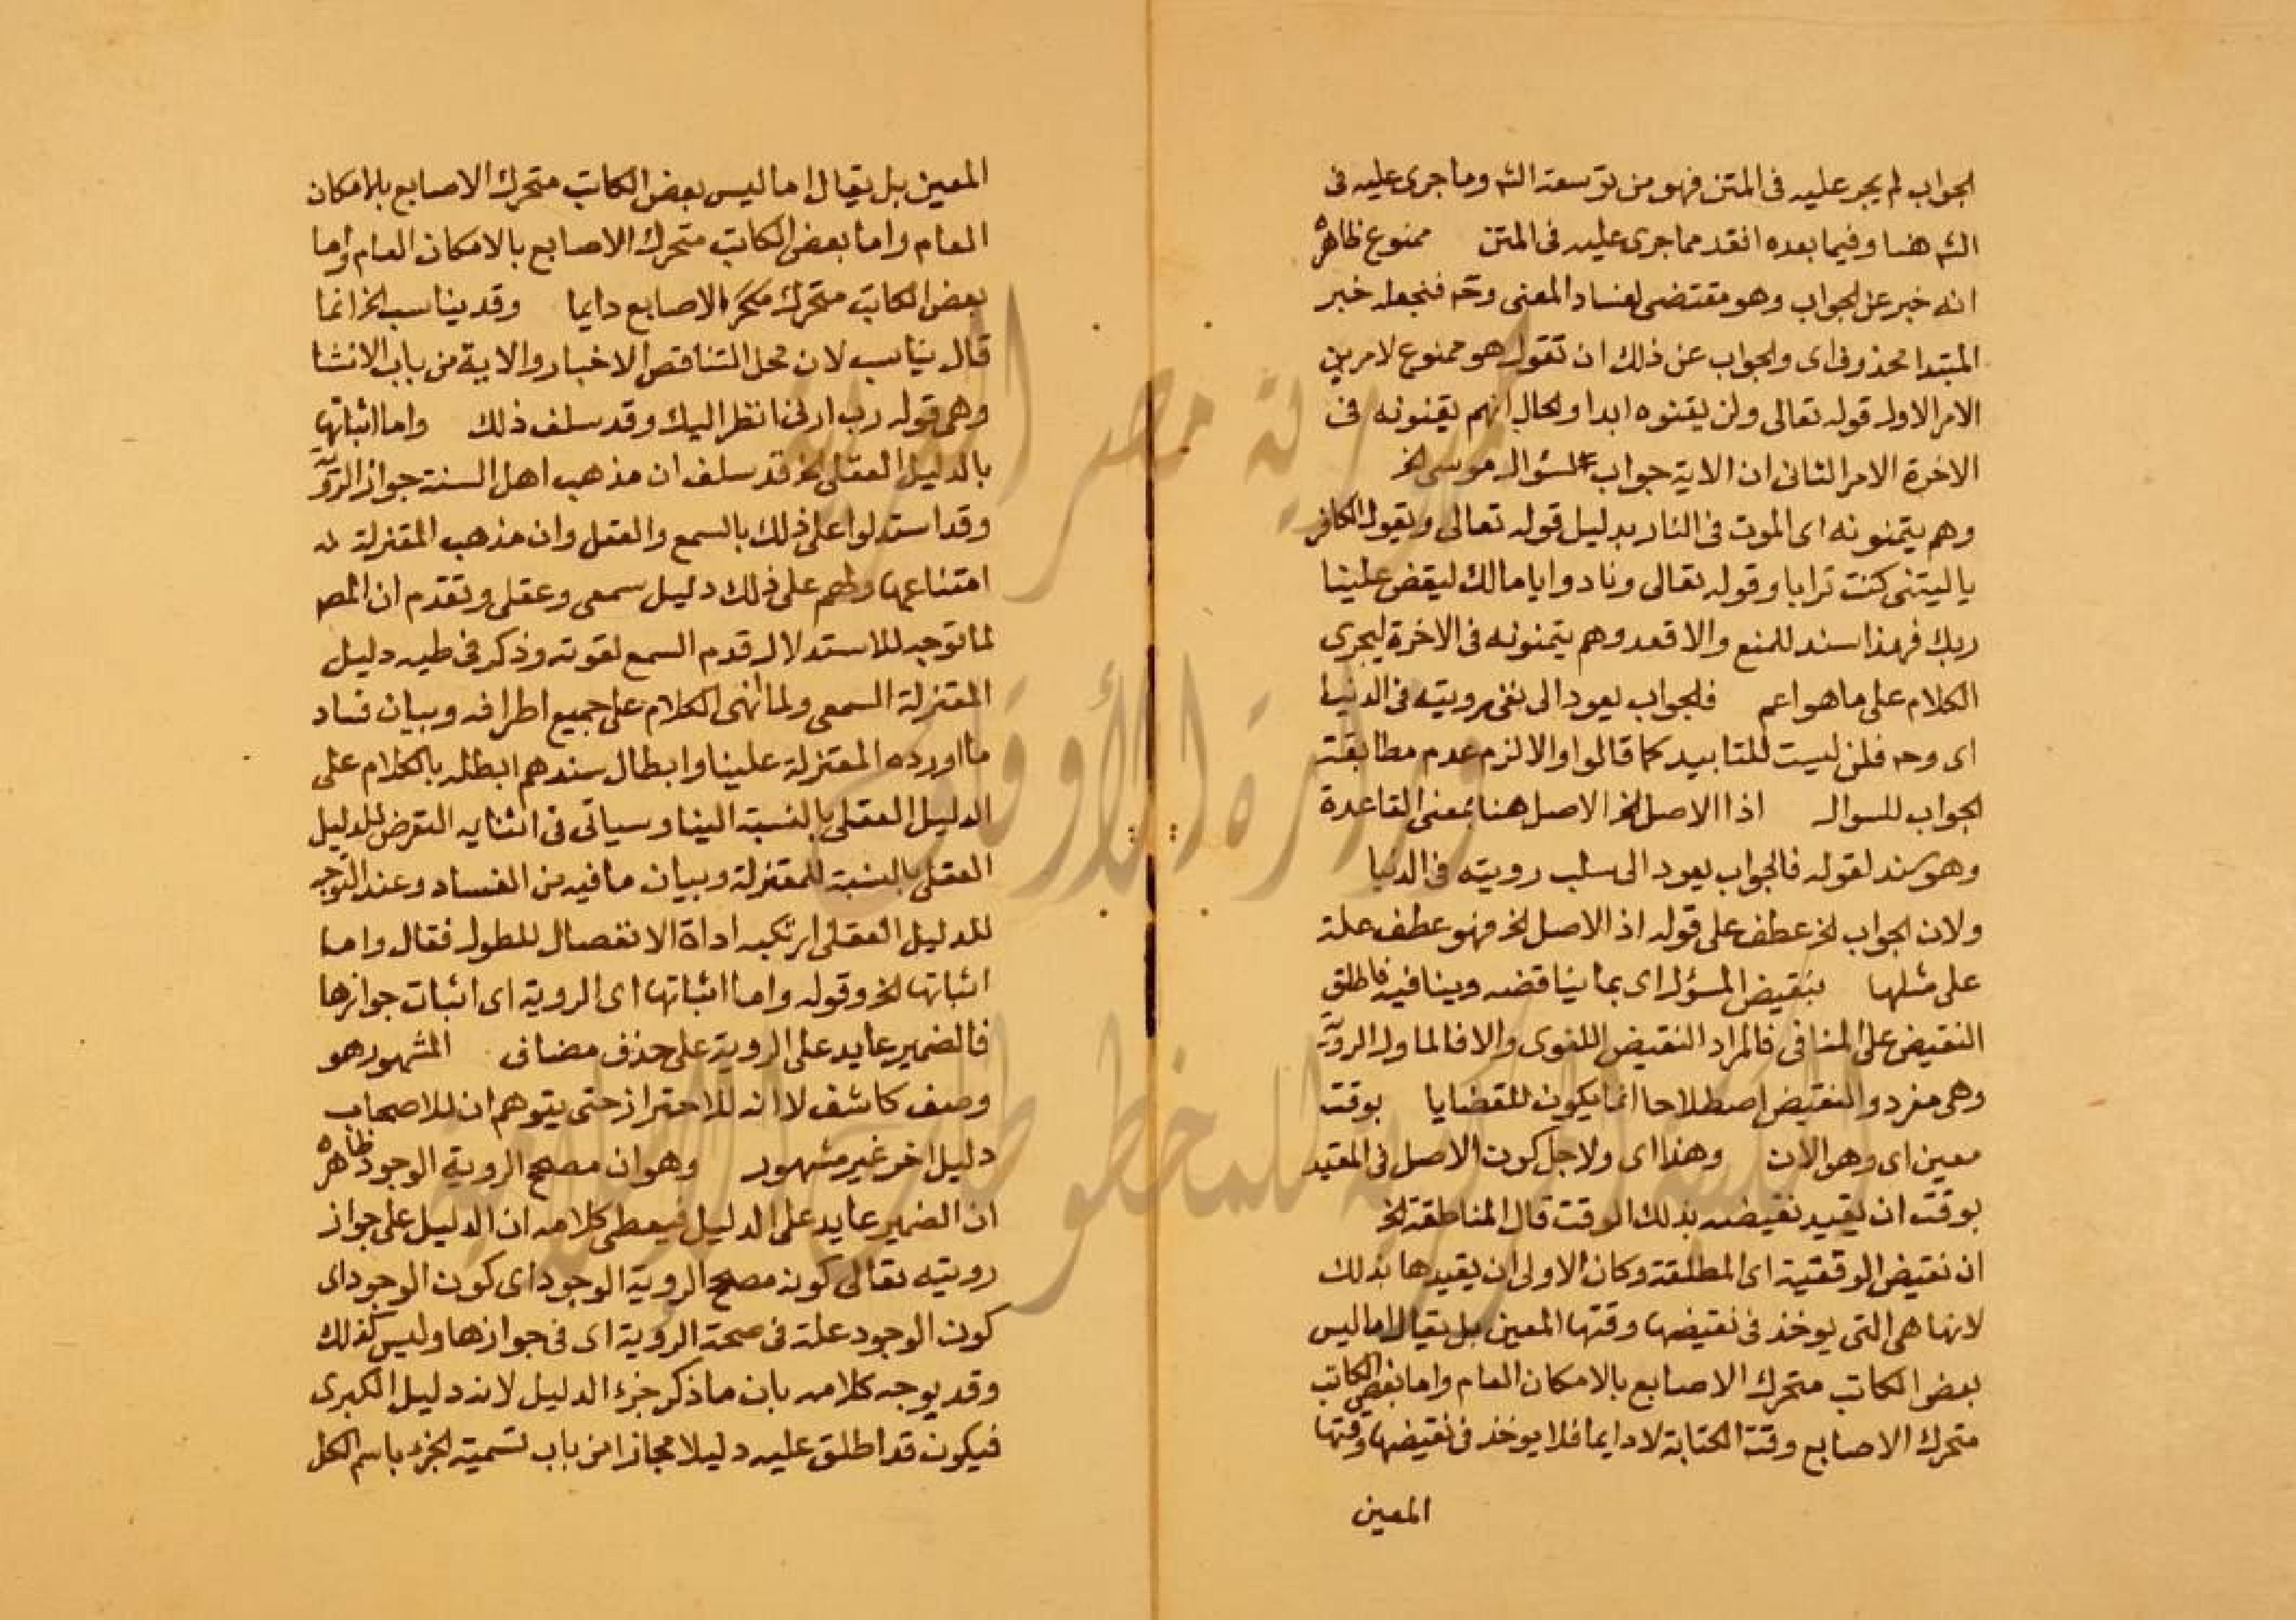 الجواب لم يجر عليه فى المتن فهو من توسعة الشم وما جرى عليه فى
الشم هنا وفيما بعده اقعد مما جرى عليه فى المتن ممنوع ظاهره
انه خبر عن الجواب وهو مقتضى لفساد المعنى وحـ فنجعله خبر
المبتدا محذوف اى والجواب عن ذلك ان تقول هو ممنوع لامرين
الامر الاول قوله تعالى ولن يتمنوه ابدا والحال انهم يتمنونه فى
الاخرة الامر الثانى ان الاية جواب لسؤال موسى الخ
وهم يتمنونه اى الموت فى النار بدليل قوله تعالى ويقول الكافر
يا ليتنى كنت ترابا وقوله تعالى ونادوا يا مالك ليقض علينا
ربك فهذا سند للمنع والاقعد وهم يتمنونه فى الاخرة ليجرى
الكلام على ما هو اعم فالجواب يعود الى نفى رويته فى الدنيا
اى وحـ فلن ليست للتابيد كما قالوا والا لزم عدم مطابقة
الجواب للسوال اذا الاصل الخ الاصل هنا بمعنى القاعدة
وهو سند لقوله فالجواب يعود الى سلب رويته فى الدنيا
ولان الجواب الخ عطف على قوله اذ الاصل الخ فهو عطف علة
على مثلها بنقيض المسؤل اى بما يناقضه وينافيه فاطلق
النقيض على المنافى فالمراد النقيض اللغوى والا فالماول الروية
وهى مفرد والنقيض اصطلاحا انما يكون للقضايا بوقت
معين اى وهو الان وهذا اى ولاجل كون الاصل فى المقيد
بوقت ان يقيد نقيضه بذلك الوقت قال المناطقة الخ
ان نقيض الوقتية اى المطلقة وكان الاولى ان يقيدها بذلك
لانها هى التى يوخذ فى نقيضها وقتها المعين بل يقال اما ليس
بعض الكاتب متحرك الاصابع بالامكان العام واما بعض الكاتب
متحرك الاصابع وقت الكتابة لا دايما فلا يوخذ فى نقيضها وقتها
المعين
المعين بل يقال اما ليس بعض الكاتب متحرك الاصابع بالامكان
العام واما بعض الكاتب متحرك الاصابع بالامكان العام واما
بعض الكاتب متحرك الاصابع دايما وقد يناسب الخ انما
قال يناسب لان محل التناقض الاخبار والاية من باب الانشا
وهى قوله رب ارنى انظر اليك وقد سلف ذلك واما اثباتها
بالدليل العقلى الخ قد سلف ان مذهب اهل السنة جواز الروية
وقد استدلوا على ذلك بالسمع والعقل وان مذهب المعتزلة
امتناعها ولهم على ذلك دليل سمعى وعقلى وتقدم ان المصـ
لما توجه للاستدلال قدم السمع لقوته وذكر فى طيه دليل
المعتزلة السمعى ولما انهى الكلام على جميع اطرافه وبيان فساد
ما اورده المعتزلة علينا وابطال سندهم ابطله بالكلام على
الدليل العقلى بالنسبة الينا وسياتى فى اثنايه التعرض للدليل
العقلى بالنسبة للمعتزلة وبيان ما فيه من الفساد وعند التوجه
للدليل العقلى ارتكب اداة الانفصال للطول فقال واما
اثباتها الخ وقوله واما اثباتها اى الروية اى اثبات جوازها
فالضمير عايد على الروية على حذف مضاف المشهور هو
وصف كاشف لا انه للاحتراز حتى يتوهم ان للاصحاب
دليل اخر غير مشهور وهو ان مصحح الروية الوجود ظاهره
ان الضمير عايد على الدليل فيعطى كلامه ان الدليل على جواز
رويته تعالى كون مصحح الروية الوجود اى كون الوجود اى
كون الوجود علة فى صحة الروية اى فى جوازها وليس كذلك
وقد يوجه كلامه بان ما ذكر جزء الدليل لانه دليل الكبرى
فيكون قد اطلق عليه دليلا مجازا من باب تسمية الجزء باسم الكل